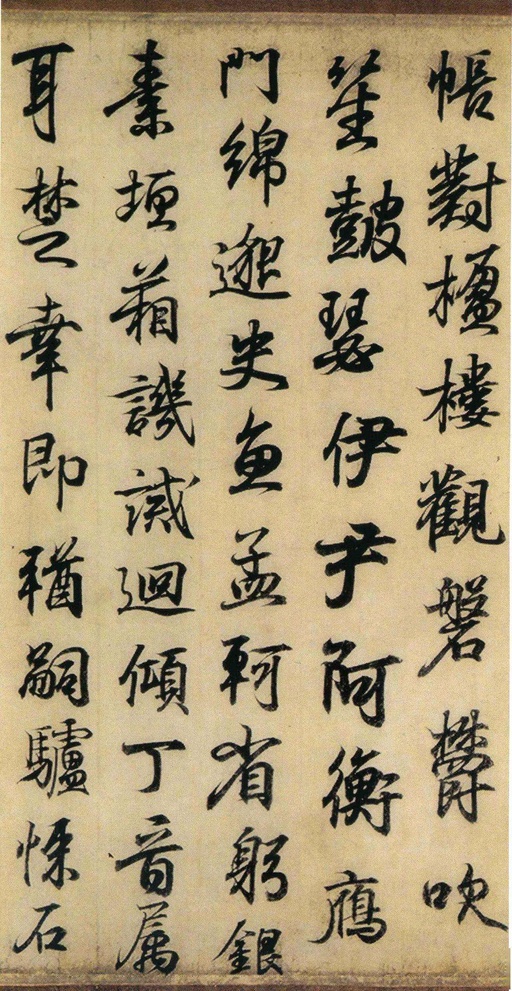 帳對楹樓觀磐欝吹
笙皷瑟伊尹阿衡鴈
門綿邈史魚孟軻省躬銀
素垣箱譏誡迴傾丁音属
耳楚幸即輶嗣驢悚石